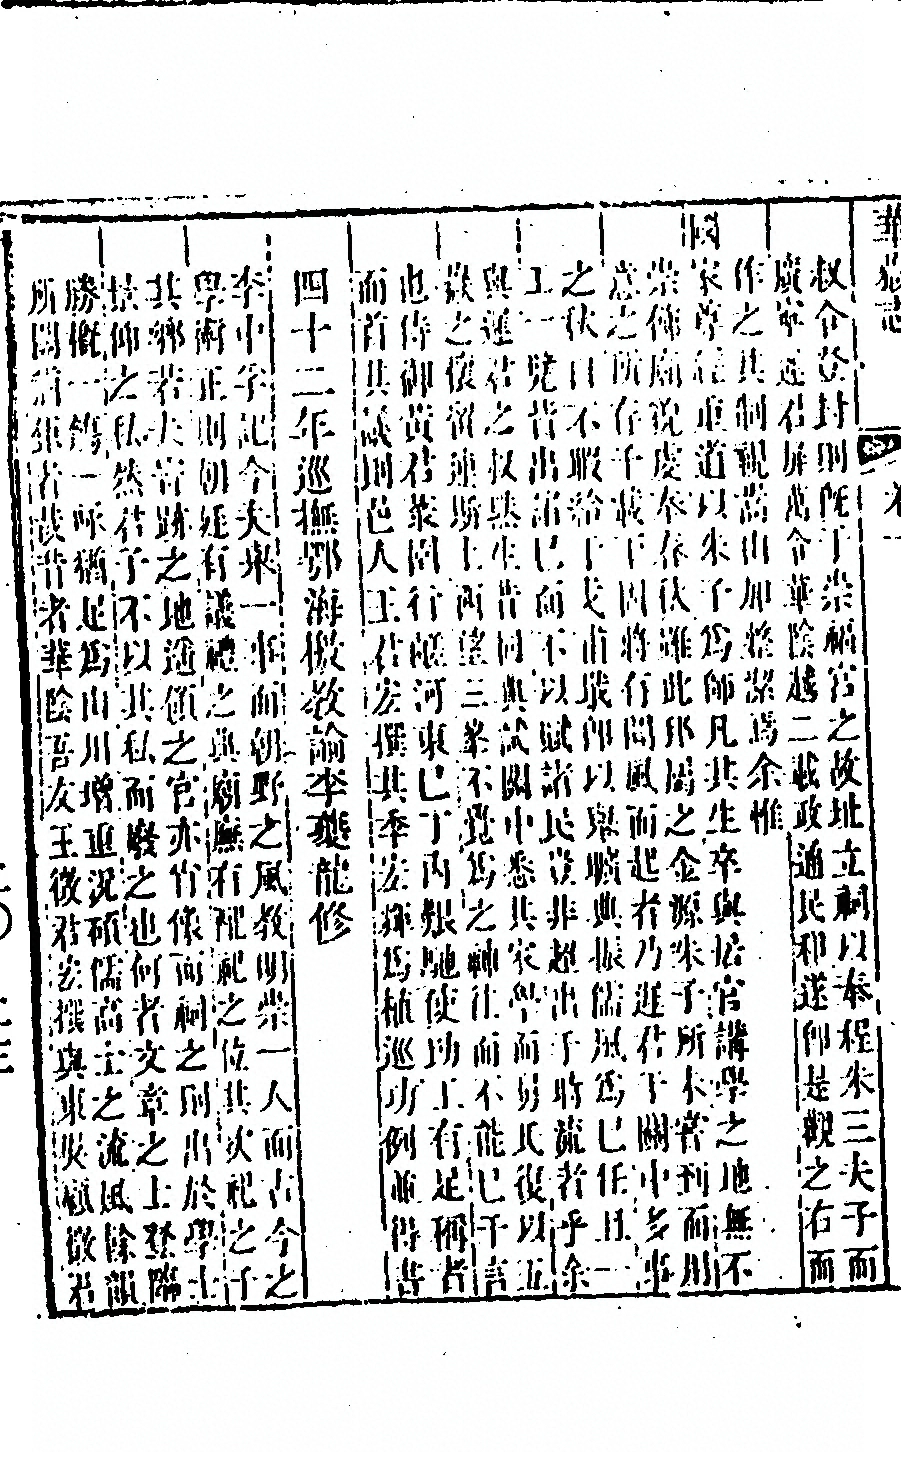 華嶽志 卷一
叔令登封則既于崇福宮之故址立祠以奉程朱三夫子而
廣寧遲君屏萬令華陰越二載政通民和遂仰是觀之右而
作之其制視嵩山加整潔焉余惟
國家尊信重道以朱子爲師凡其生卒與居官講學之地無不
崇飾廟貌虔奉春秋雖此邦周之金源朱子所未嘗到而則
意之所存千載下因將有聞風而起者乃遲君于關中多事
之秋日不暇給干戈甫戢即以舉曠典振儒風爲已任且一
工一甓皆出諸已而不以賦諸民豈非超出于時流者乎余
與遲君之叔炁生昔同典試闈中悉其家學而男氏復以五
嶽之懷宿連斯土兩望三峯不覺爲之神往而不能已于言
也侍御黃君嶪固行鹺河東已丁內艱馳使助工有足稱者
而首其議則邑人王君宏撰其季宏輝爲植巡功例並得書
四十二年巡撫鄂海檄教諭李夔龍修
李中孚記今夫舉一事而朝野之風教明崇一人而古今之
學術正則朝廷有議禮之典廟廡有配祀之位其次祀之于
其鄉若夫嘗跡之地遥領之官亦肖像而祠之則出於學士
景仰之私然君子不以其私而廢之也何者文章之士登臨
勝概一觴一咏猶足爲山川增重況碩儒高士之流風餘韻
所關前並者哉昔者華陰吾友王徵君宏撰與東吳顧徵君